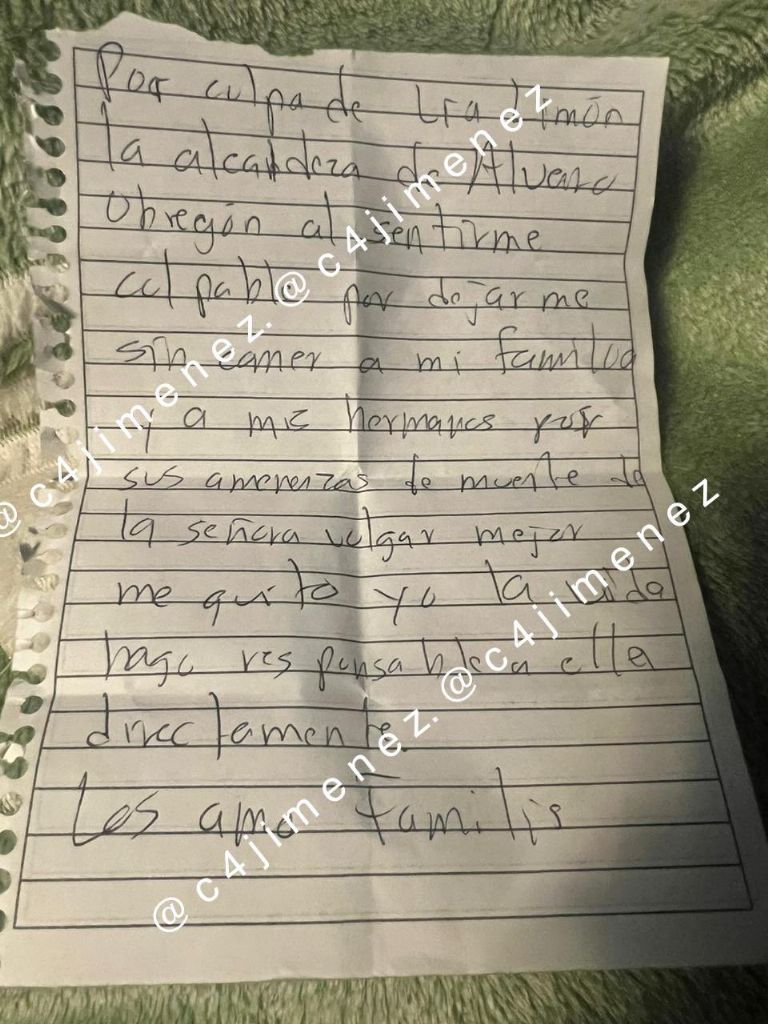 Por culpa de Lia Limón
la alcaldeza de Alvaro
Obregón al sentirme
culpable por dejarme
sin comer a mi familia
y a mis hermanos por
sus amenenzas de muerte de
la señora vulgar mejor
me quito yo la vida
hago responsable a ella
directamente.
Los amo Familis
@c4jimenez.@c4jimenez
@c4jimenez.@c4jimenez